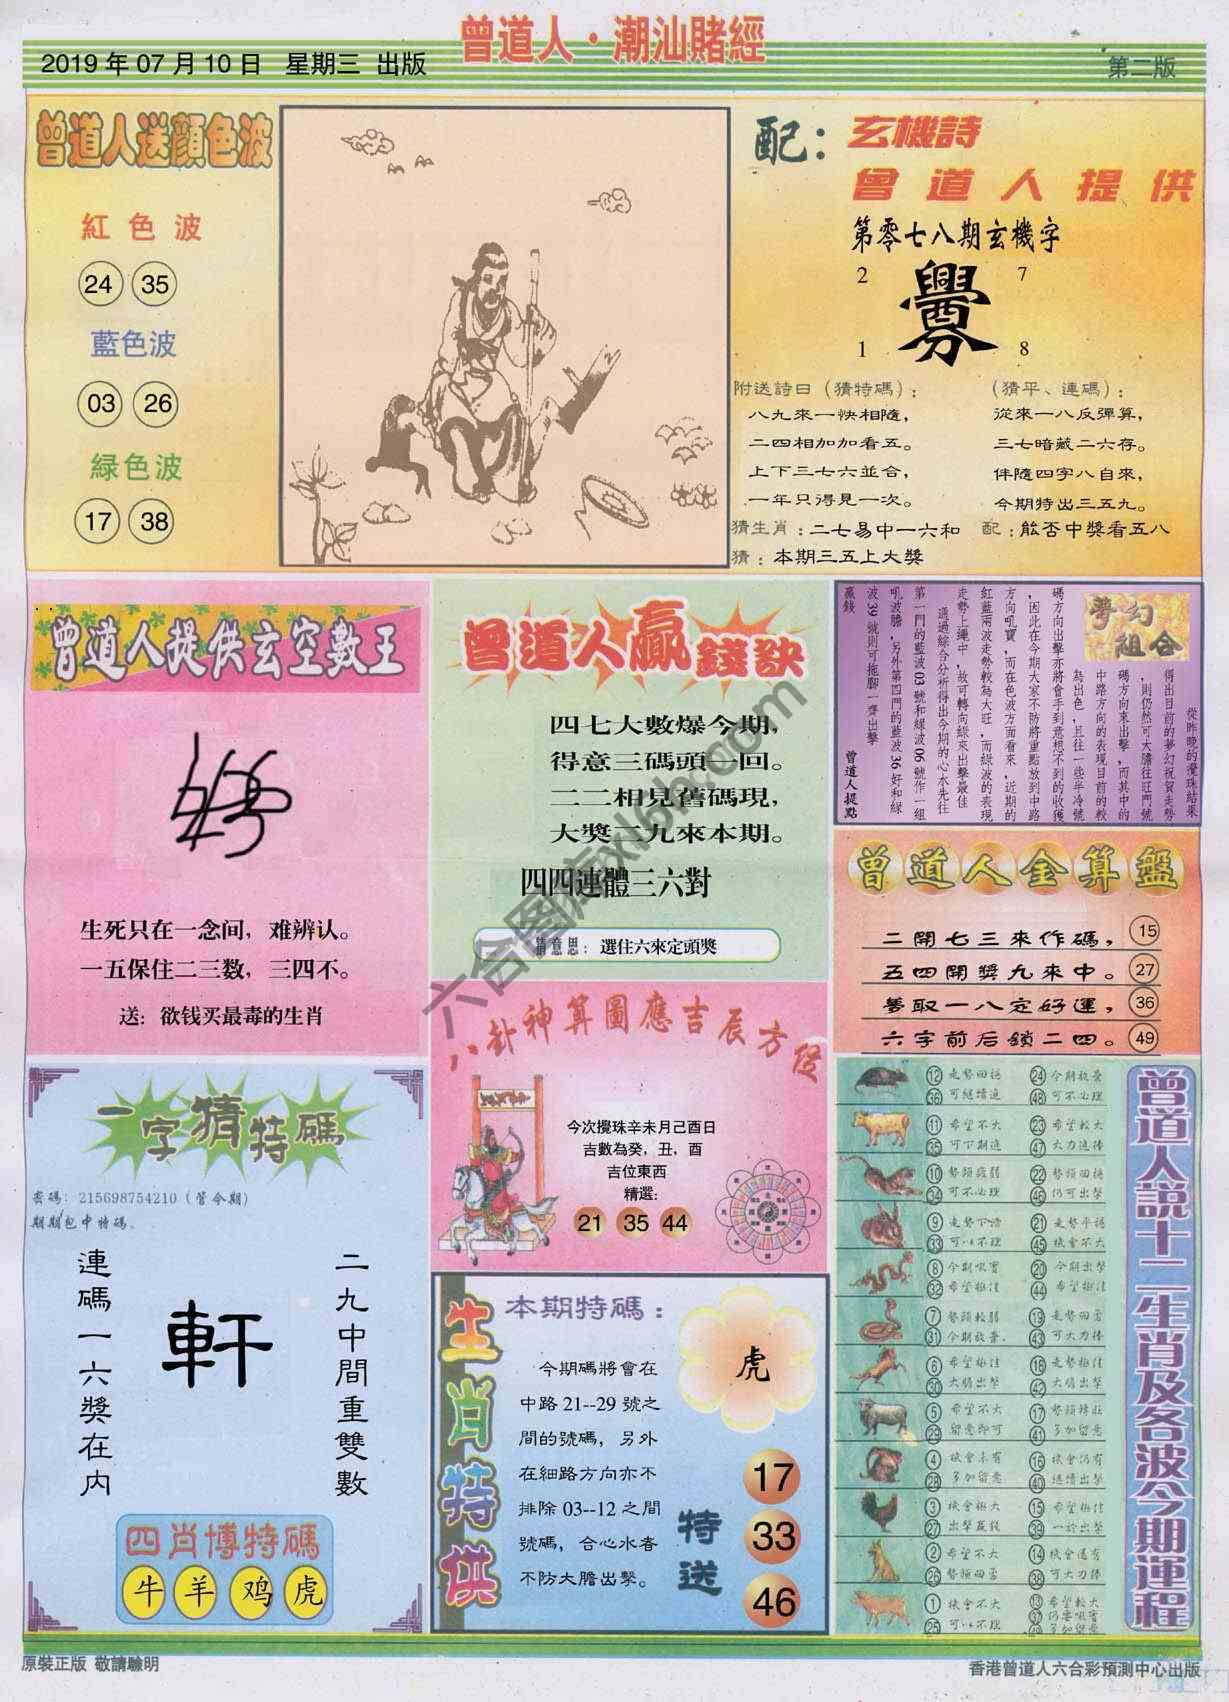 曾道人·潮汕賭經
2019年07月10日 星期三 出版
第二版
曾道人送顏色波
紅色波
24 35
藍色波
03 26
緑色波
17 38
配：
玄機詩
曾道人提供
第零七八期玄機字
2 7
爨
1 8
附送詩曰（猜特碼）：
八九來一快相隨，
二四相加加看五。
上下三七六並合，
一年只得見一次。
（猜平、連碼）：
從來一八反彈算，
三七暗藏二六存。
伴隨四字八自來，
今期特出三五九。
猜生肖：二七易中一六和
配：能否中獎看五八
猜：本期三五上大獎
曾道人提供玄空數王
生死只在一念间，难辨认。
一五保住二三数，三四不。
送：欲钱买最毒的生肖
曾道人贏錢訣
四七大數爆今期，
得意三碼頭一回。
二二相見舊碼現，
大獎二九來本期。
四四連體三六對
猜意思：選住六來定頭獎
夢幻
組合
從昨晚的攪珠結果
得出目前的夢幻祝賀走勢
，則仍然可大膽往旺門號
碼方向來出擊，而其中的
中路方向的表現目前的較
為出色，且往一些半冷號
碼方向出擊亦將會手到意想不到的收獲
，因此在今期大家不防將重點放到中路
方向吼寶，而在色波方面看來，近期的
紅藍兩波走勢較為大旺，而綠波的表現
走勢上繩中，故可轉向綠來出擊最佳
通過綜合分析得出今期的心水先往
第一門的藍波03號和綠波06號作一組
吼波膽，另外第四門的藍波36好和綠
波39號則可拖腳一齊出擊
贏錢
曾道人提點
曾道人金算盤
二開七三來作碼， 15
五四開獎九來中。 27
夢取一八定好運， 36
六字前后鎖二四。 49
八卦神算圖應吉辰方位
今次攪珠辛未月己酉日
吉數為癸，丑，酉
吉位東西
精選：
21 35 44
一字猜特碼
密碼：215698754210（管令期）
期期包中特碼。
二九中間重雙數
軒
連碼一六獎在内
四肖博特碼
牛 羊 鸡 虎
生肖特供
本期特碼：
虎
今期碼將會在
中路21--29號之
間的號碼，另外
在細路方向亦不
排除03--12之間
號碼，合心水者
不防大膽出擊。
特送
17
33
46
曾道人說十二生肖及各波今期運程
12 走勢回穩 24 今期放棄
36 可繼續追 48 可不必理
11 希望不大 23 希望較大
35 可下期追 47 大力追捧
10 勢頭疲弱 22 勢頭回穩
34 可不必理 46 仍可出擊
9 走勢下滑 21 走勢平穩
33 可以不理 45 機會不大
8 今期吸實 20 今期出擊
32 希望極佳 44 希望極佳
7 勢頭較弱 19 走勢回勇
31 今期放棄。 43 可大力捧
6 希望極佳 18 走勢極佳
30 大膽出擊 42 大膽出擊
5 希望不大 17 勢頭辣旺
29 留意即可 41 多加留意
4 機會未有 16 機會仍有
28 多加留意 40 繼續出擊
3 機會極大 15 希望極佳
27 出擊贏錢 39 一於出擊
2 希望不大 14 機會還有
26 勢頭回勇 38 可大力捧
1 機會不大 13 希望較大
25 可以不理 37 仍要吸實
49 多加留意
原裝正版 敬請驗明
香港曾道人六合彩預測中心出版
六合图库xlbh.com